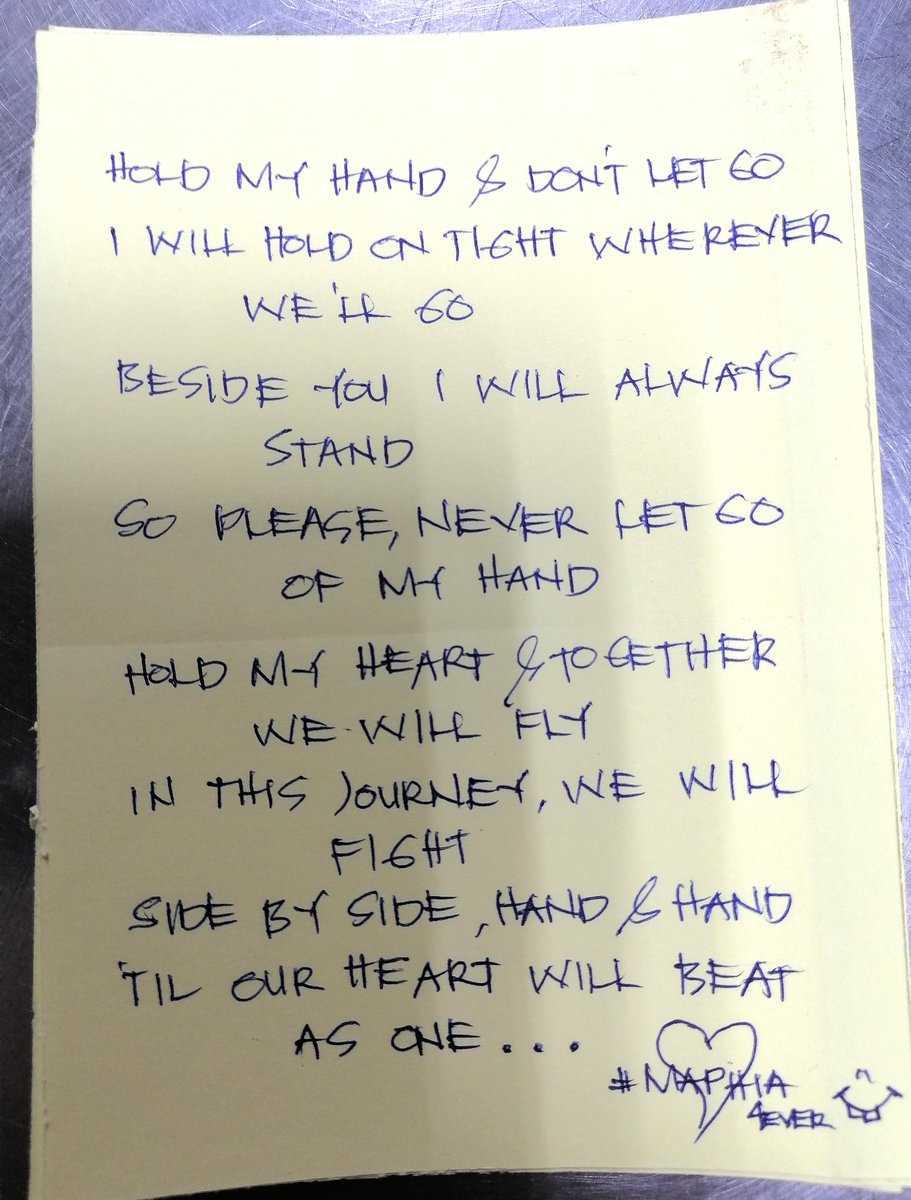 HOLD MY HAND & DON'T LET GO
I WILL HOLD ON TIGHT WHEREVER
WE'LL GO
BESIDE YOU I WILL ALWAYS
STAND
SO PLEASE, NEVER LET GO
OF MY HAND
HOLD MY HEART & TOGETHER
WE WILL FLY
IN THIS JOURNEY, WE WILL
FIGHT
SIDE BY SIDE, HAND & HAND
'TIL OUR HEART WILL BEAT
AS ONE...
#MAPHIA
4EVER